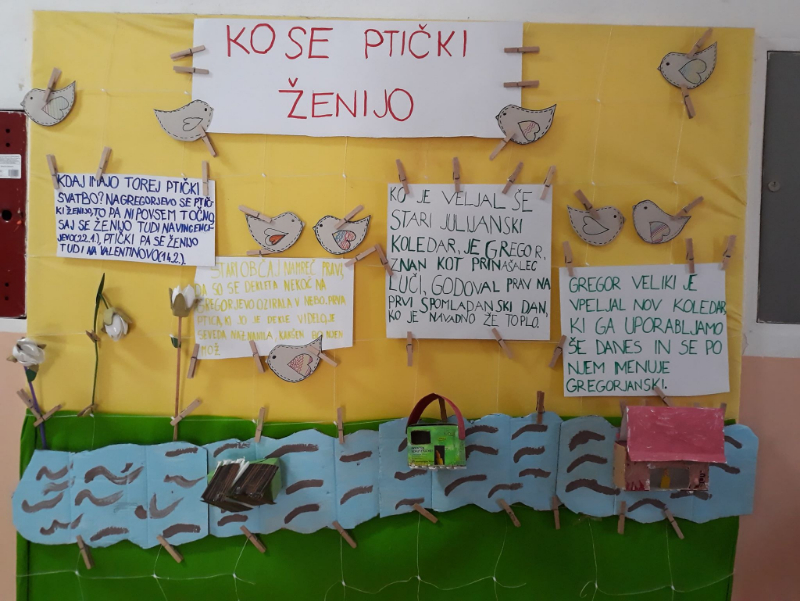 KO SE PTIČKI
ŽENIJO
KDAJ IMAJO TOREJ PTIČKI
SVATBO? NA GREGORJEVO SE PTIČ
KI ŽENIJO, TO PA NI POVSEM TOČNO,
SAJ SE ŽENIJO TUDI NA VINCENCI-
JEVO(22.1.), PTIČKI PA SE ŽENIJO
TUDI NA VALENTINOVO(14.2.).
STARI OBIČAJ NAMREČ PRAVI,
DA SO SE DEKLETA NEKOČ NA
GREGORJEVO OZIRALA V NEBO. PRVA
PTICA, KI JO JE DEKLE VIDELO, JE
SEVEDA NAZNANILA, KAKŠEN BO NJEN
MOŽ
KO JE VELJAL ŠE
STARI JULIJANSKI
KOLEDAR, JE GREGOR,
ZNAN KOT PRINAŠALEC
LUČI, GODOVAL PRAV NA
PRVI SPOMLADANSKI DAN,
KO JE NAVADNO ŽE TOPLO.
GREGOR VELIKI JE
VPELJAL NOV KOLEDAR,
KI GA UPORABLJAMO
ŠE DANES IN SE PO
NJEM IMENUJE
GREGORJANSKI.